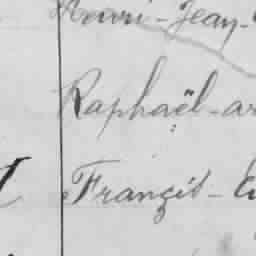 Henri-Jean-
Raphaël-ar
Françis-E